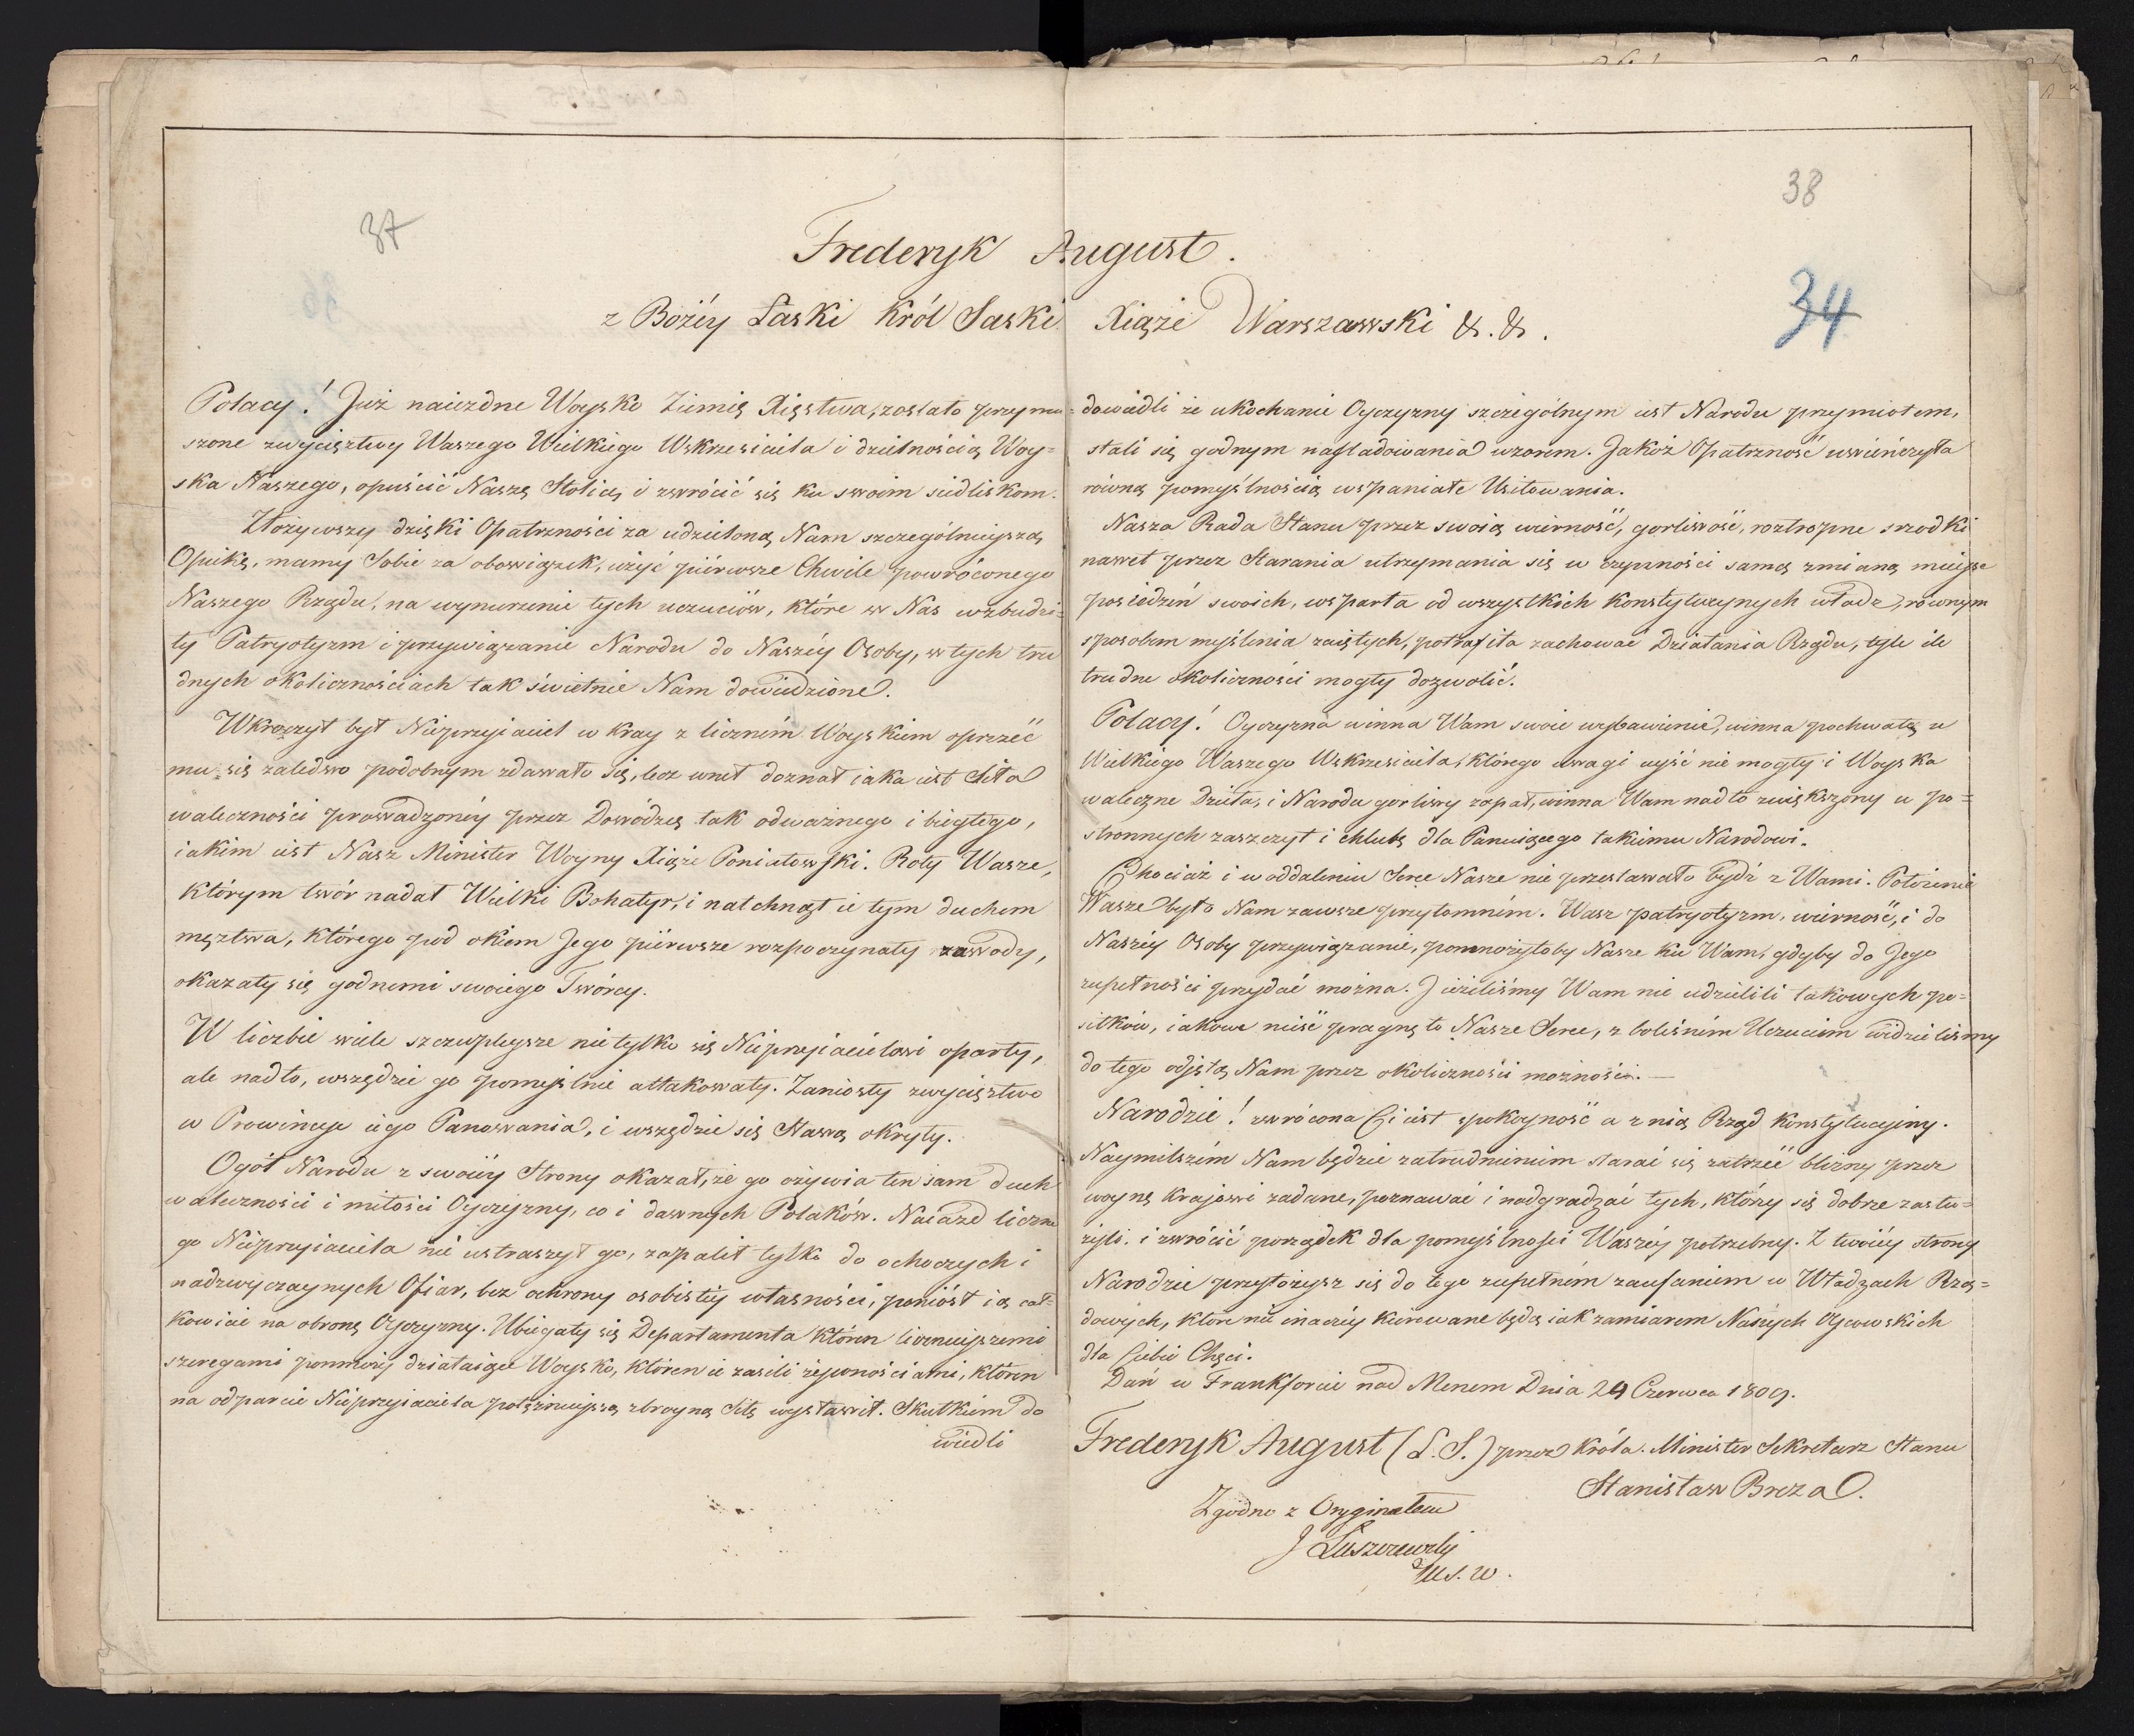 37
38
34
Frederyk August.
z Bożéy Łaski Król Saski Xiąże Warszawski &. &.
Polacy! Już naiezdne Woysko Ziemię Xięstwa, zostało przymu=
szone zwycięztwy Waszego Wielkiego Wskrzesiciela i dzielnością Woy=
ska Naszego, opuścić Naszą Stolicę i zwrócić się ku swoim siedliskom.
Złożywszy dzięki Opatrzności za udzieloną Nam szczególnieyszą
Opiekę, mamy Sobie za obowiązek, użyć piérwsze Chwile powróconego
Naszego Rządu, na wynurzenie tych uczuciów, które w Nas wzbudzi=
ły Patryotyzm i przywiązanie Narodu do Naszéy Osoby, w tych tru
dnych okolicznościach tak świetnie Nam dowiedzione.
Wkroczył był Nieprzyiaciel w kray z liczném Woyskiem oprzéć
mu się zaledwo podobnym zdawało się, lecz wnet doznał iaka iest Siła
waleczności prowadzonéy przez Dowódzcę tak odważnego i biegłego,
iakim iest Nasz Minister Woyny Xiąże Poniatowski. Roty Wasze,
którym twór nadał Wielki Bohatyr, i natchnął ie tym duchem
męztwa, którego pod okiem Jego piérwsze rozpoczynały zawody,
okazały się godnemi swoiego Twórcy.
W liczbie wiele szczupleysze nie tylko się Nieprzyiacielowi oparły,
ale nadto, wszędzie go pomyślnie attakowały. Zaniosły zwycięztwo
w Prowincye iego Panowania, i wszędzie się Sławą okryły.
Ogół Narodu z swoiéy Strony okazał, że go ożywia ten sam duch
waleczności i miłości Oyczyzny, co i dawnych Polaków. Naiazd liczne
go Nieprzyiaciela nie ustraszył go, zapalił tylko do ochoczych i
nadzwyczaynych Ofiar, bez ochrony osobistéy własności, poniósł ią cał=
kowicie na obronę Oyczyzny. Ubiegały się Departamenta któren licznieyszemi
szeregami pomnoży działaiące Woysko, któren ie zasili żywnościami, któren
na odparcie Nieprzyiaciela potężnieyszą zbroyną Siłę wystawił. Skutkiem do
wiedli
dowiedli że ukochanie Oyczyzny szczególnym iest Narodu przymiotem,
stali się godnym nasladowania wzorem. Jakoż Opatrzność uwieńczyła
równą pomyślnością wspaniałe Usiłowania.
Nasza Rada Stanu przez swoią wierność, gorliwość, roztropne srzodki
nawet przez Starania utrzymania się w czynności samą zmianą mieysc
posiedzeń swoich, wsparta od wszystkich konstytucyynych władz, równym
sposobem myślenia zaiętych, potrafiła zachować Działania Rządu, tyle ile
trudne okoliczności mogły dozwolić.
Polacy! Oyczyzna winna Wam swoie wybawienie, winna pochwałę u
Wielkiego Waszego Wskrzesiciela, którego uwagi uyść nie mogły i Woyska
waleczne Dzieła, i Narodu gorliwy zapał, winna Wam nadto zwiększony u po=
stronnych zaszczyt i chlubę dla Panuiącego takiemu Narodowi.
Chociaż i w oddaleniu Serce Nasze nie przestawało bydź z Wami. Położenie
Wasze było Nam zawsze przytomném. Wasz patryotyzm, wierność, i do
Naszéy Osoby przywiązanie, pomnożyłoby Nasze ku Wam, gdyby do Jego
zupełności przydać można. Jeżeliśmy Wam nie udzielili takowych po=
siłków, iakowe nieść pragnęło Nasze Serce, z boleśném Uczuciem widzieliśmy
do tego odjętą Nam przez okoliczności możności. —
Narodzie! zwrócona Ci iest spokoyność a z nią Rząd konstytucyiny.
Naymilszém Nam będzie zatrudnieniem starać się zatrzéć blizny przez
woynę krajowi zadane, poznawać i nadgradzać tych, którzy się dobrze zasłu=
żyli, i zwrócić porządek dla pomyślności Waszéy potrzebny. Z twoiéy strony
Narodzie przyłożysz się do tego zupełném zaufaniem w Władzach Rzą=
dowych, które nie inaczéy kierowane będą iak zamiarem Naszych Oycowskich
dla Ciebie Chęci.
Dań w Frankforcie nad Menem Dnia 24 Czerwca 1809.
Frederyk August (L. S.) przez Króla. Minister Sekretarz Stanu
Stanisław Breza.
Zgodno z Oryginałem
J Łuszczewski
M. S. W.